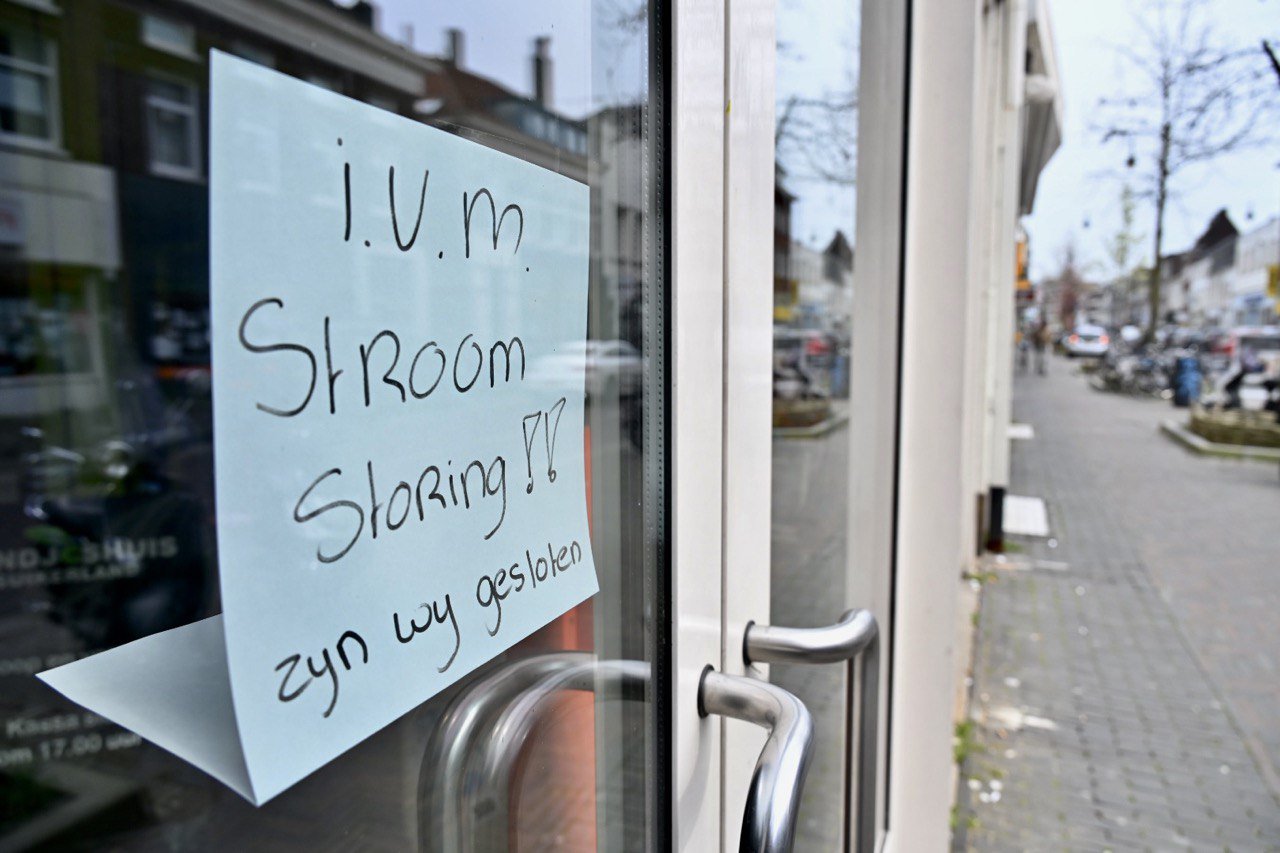 i.v.m.
Stroom
Storing!!
zyn wy gesloten
om 17.00 uur